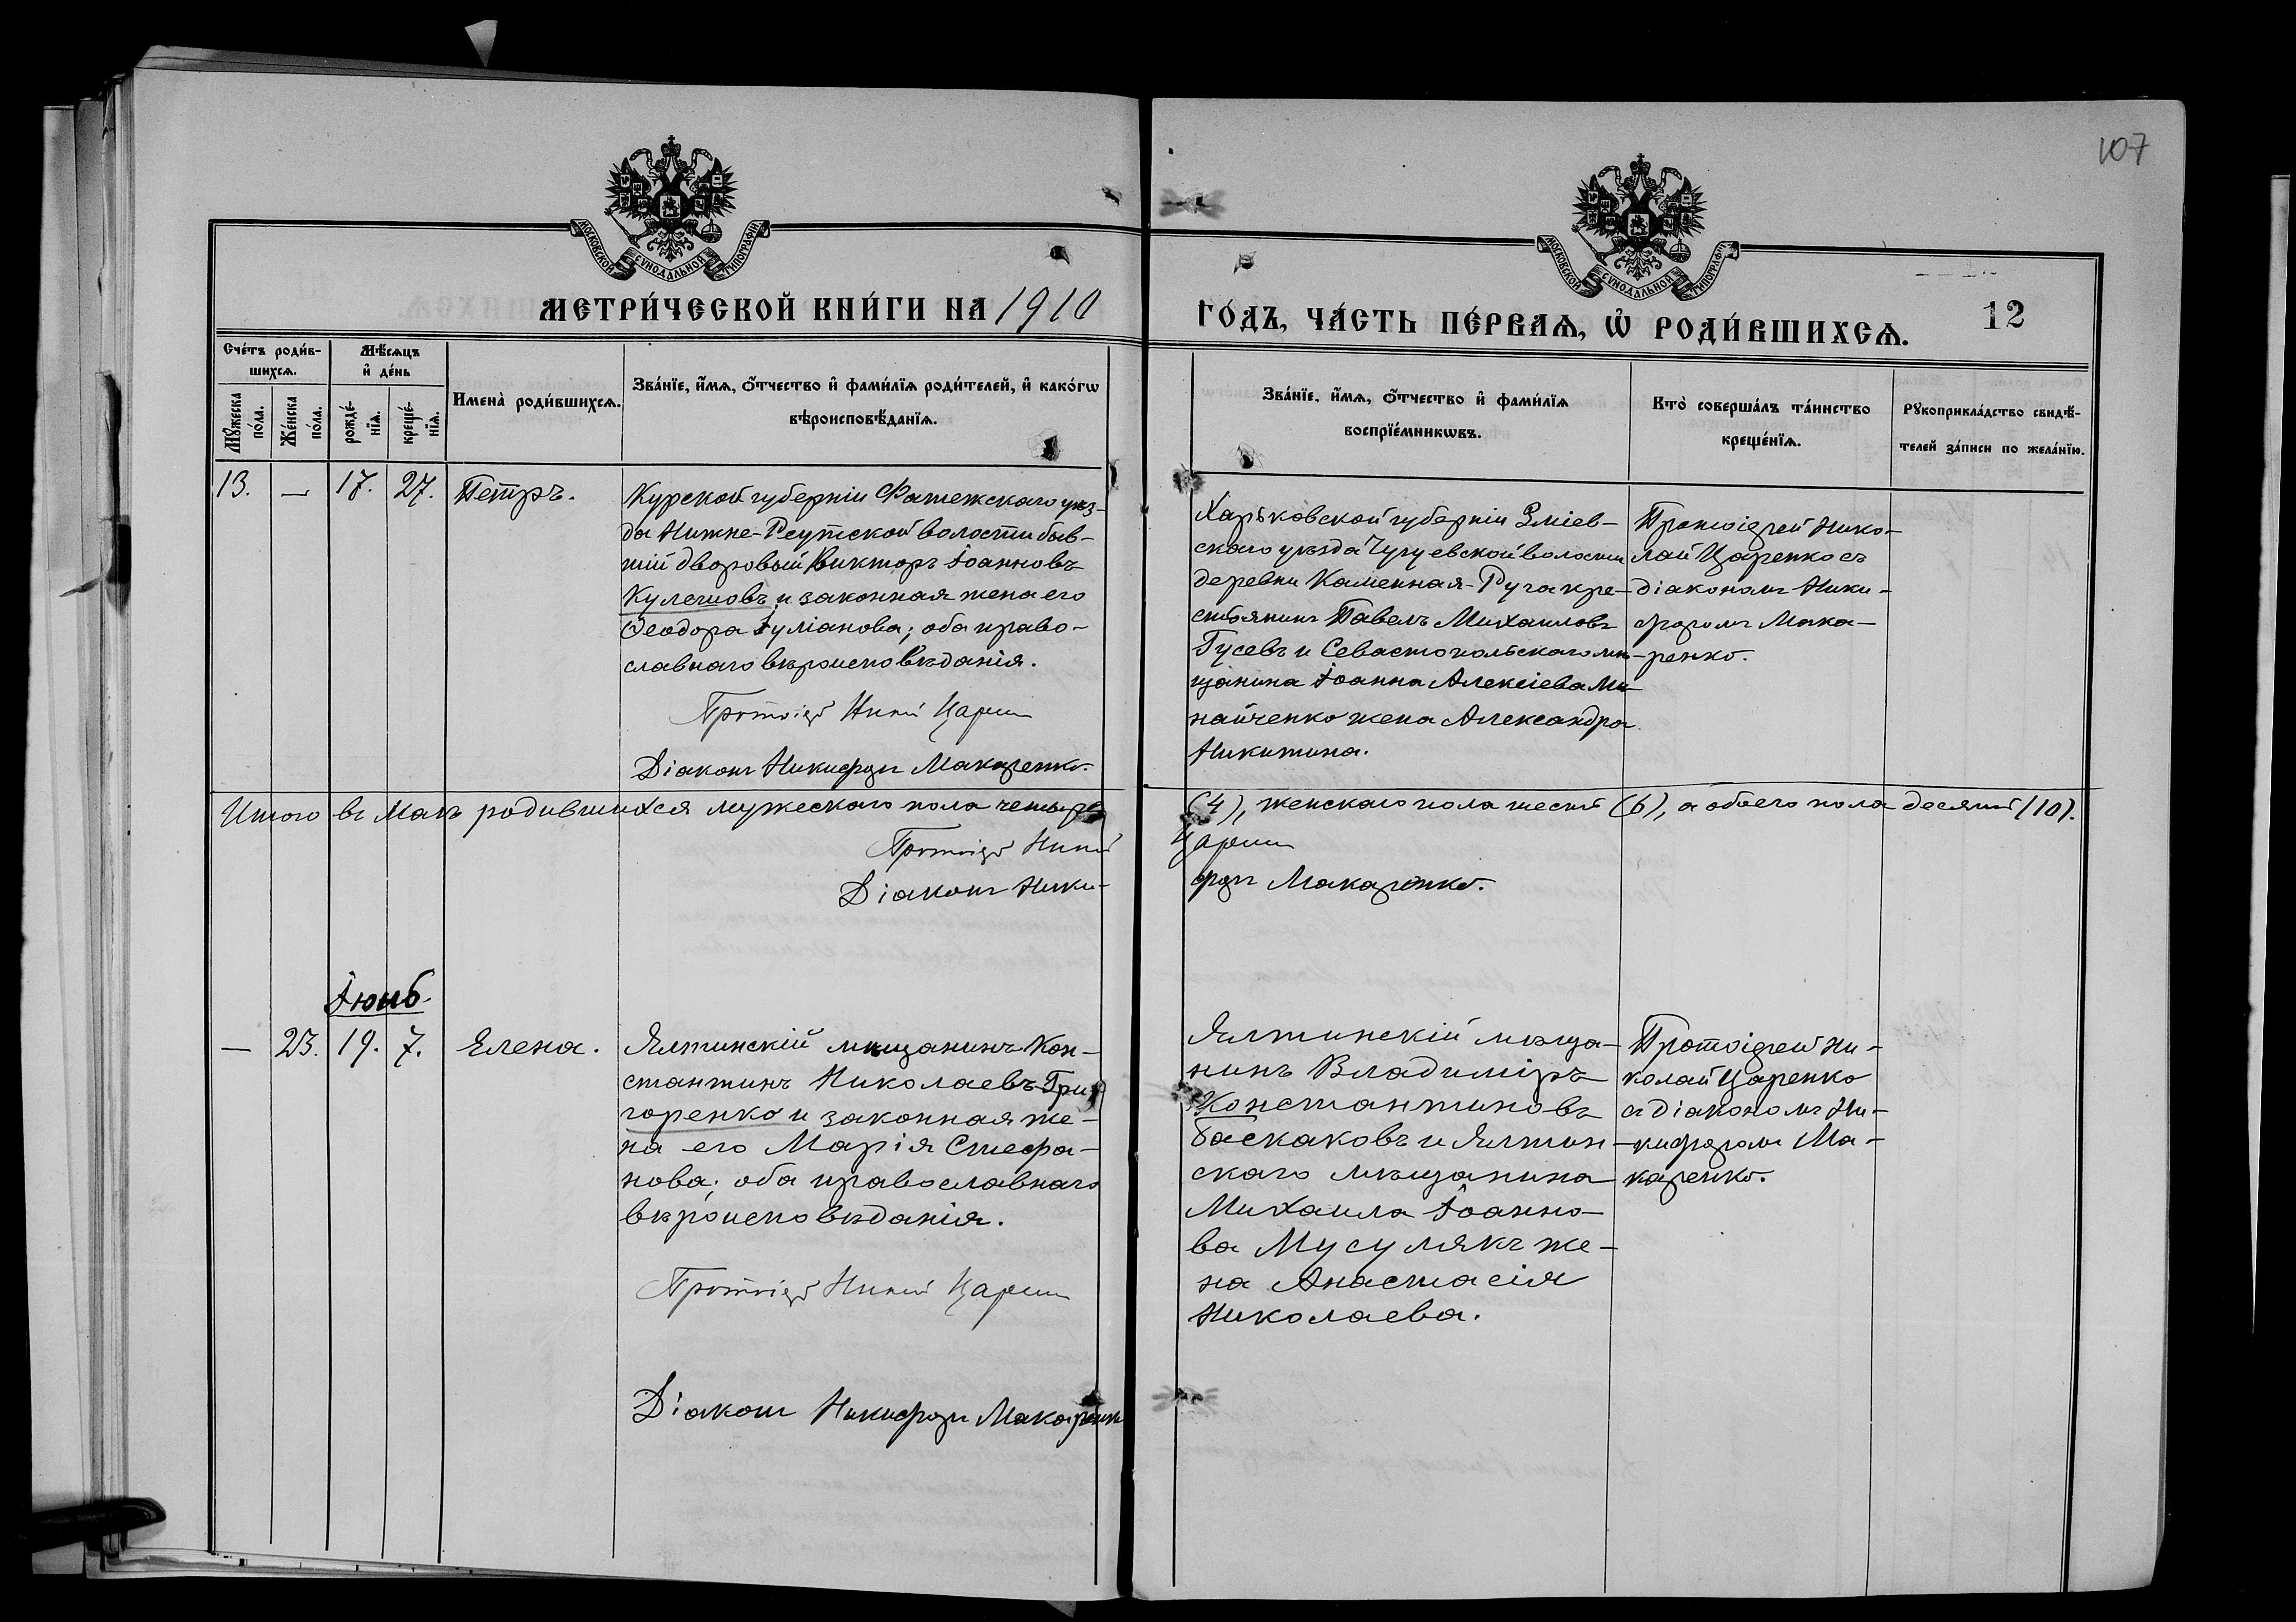 107
МОСКОВСКОЙ СѴНОДАЛЬНОЙ ТИПОГРАФІИ
МОСКОВСКОЙ СѴНОДАЛЬНОЙ ТИПОГРАФІИ
МЕТРИ́ЧЕСКОЙ КНИ́ГИ НА 1910
ГО́ДЪ, ЧА́СТЬ ПЕ́РВАѦ, Ѡ҆ РОДИ́ВШИХСѦ.
12
Сче́тъ роди́в-
шихсѧ.
Мѣ́сѧцъ
и҆ де́нь
Мꙋ́жеска
по́ла.
Же́нска
по́ла.
рожде́-
нїѧ.
креще́-
нїѧ.
Имена̀ роди́вшихсѧ.
Зва́нїе, и҆́мѧ, ѻ҆́тчество и҆ фами́лїѧ роди́телей, и҆ како́гѡ
вѣроисповѣ́данїѧ.
Зва́нїе, и҆́мѧ, ѻ҆́тчество и҆ фами́лїѧ
воспрїе́мникѡвъ.
Кто̀ соверша́лъ та́инство
креще́нїѧ.
Рꙋкоприкла́дство свидѣ́-
телей за́писи по жела́нїю.
13. — 17. 27. Петръ.
Курской губерніи Фатежскаго уѣз-
да Нижне-Реутской волости быв-
шій дворовый Викторъ Іоанновъ
Кулешовъ и законная жена его
Ѳеодора Іуліанова; оба право-
славнаго вѣроисповѣданія.
Протоіер Никол Царенко
Діаконъ Никифоръ Макаренко.
Харьковской губерніи Зміев-
скаго уѣзда Чугуевской волости
деревни Каменная-Руга кре-
стьянинъ Павелъ Михаиловъ
Гусевъ и Севастопольскаго мѣ-
щанина Іоанна Алексіева Ми-
найченко жена Александра
Никитина.
Протоіерей Нико-
лай Царенко съ
діакономъ Ники-
форомъ Мака-
ренко.
Итого въ Маѣ родившихся мужескаго пола четыре
(4), женскаго пола шесть (6), а обоего пола десять (10).
Протоіер Никол
Царенко
Діаконъ Ники-
форъ Макаренко.
Іюнь.
— 23. 19. 7. Елена.
Ялтинскій мѣщанинъ Кон-
стантинъ Николаевъ Гри-
горенко и законная же-
на его Марія Стефа-
нова; оба православнаго
вѣроисповѣданія.
Протоіер Никол Царенко
Діаконъ Никифоръ Макаренко
Ялтинскій мѣща-
нинъ Владиміръ
Константиновъ
Баскаковъ и Ялтин-
скаго мѣщанина
Михаила Іоанно-
ва Мусулякъ же-
на Анастасія
Николаева.
Протоіерей Ни-
колай Царенко
съ діакономъ Ни-
кифоромъ Ма-
каренко.